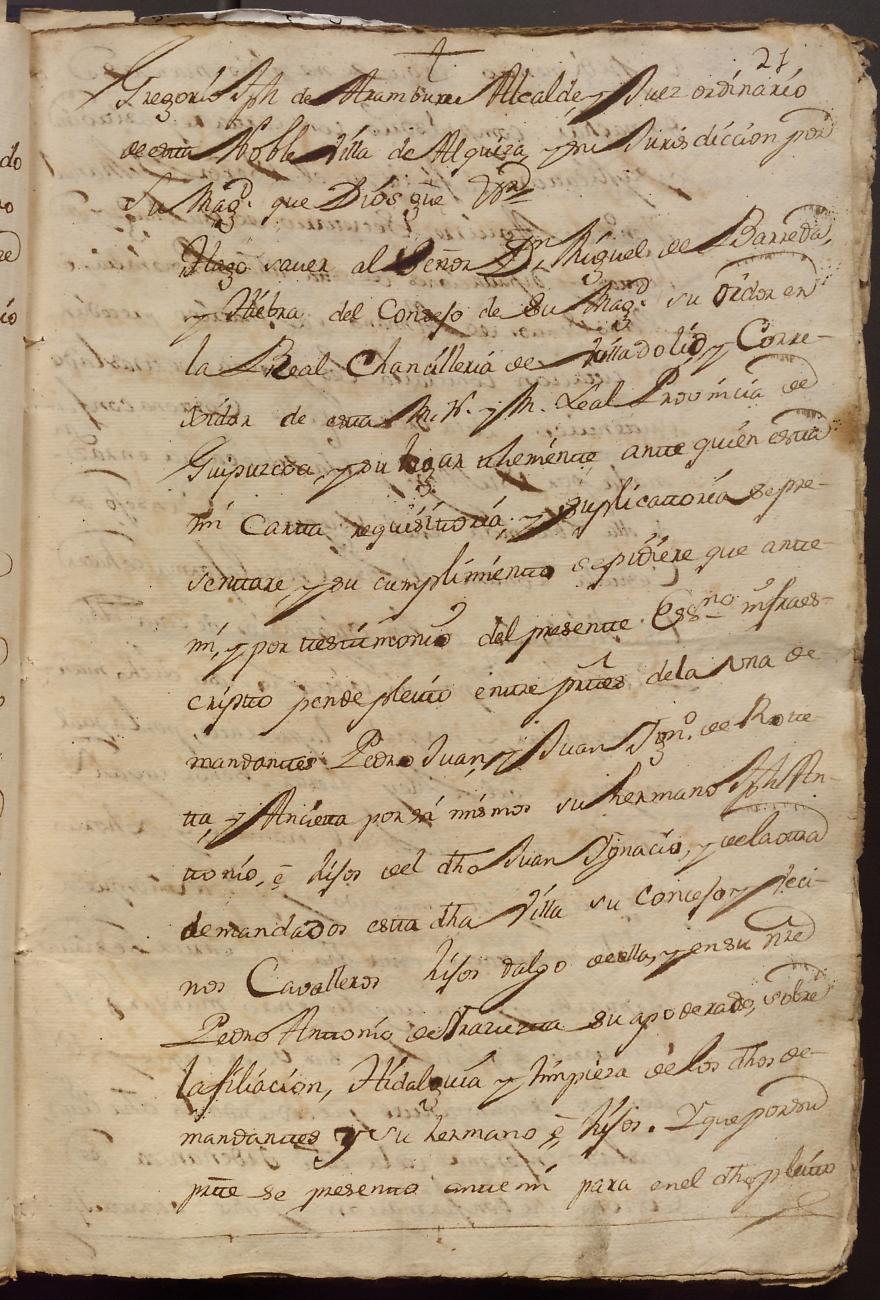 21
Gregorio Jph de Aramburu Alcalde y Juez ordinario
de esta Noble Villa de Alquiza, y su Jurisdiccion por
Su Magd. que Dios gue
Hago saver al Señor Dn. Miguel de Barreda,
y Yebra del Consejo de Su Magd. su oidor en
la Real Chancilleria de Valladolid, y Corre-
xidor de esta M. N. y M. Leal Provincia de
Guipuzcoa, y su lugar theniente ante quién esta
mi Carta requisitoria, y suplicatoria se pre-
sentare, y su cumplimiento se pidiere que ante
mi, y por testimonio del presente Essno infraes-
cripto pende pleito entre prtes de la una de
mandantes Pedro Juan, y Juan Ygno. de Rote
ta, y Ancieta por si mismos su hermano Jph An-
tonio, é hijos del dho Juan Ygnacio, y de la otra
demandados esta dha Villa su Concejo y Veci-
nos Cavalleros hijos dalgo de ella, y en su nre
Pedro Antonio de Yrazusta su apoderado, sobre
la filiacion, Hidalguia y limpieza de los dhos de-
mandantes y su hermano, é hijos. Y que por su
prte se presento ante mi para en el dho pleito